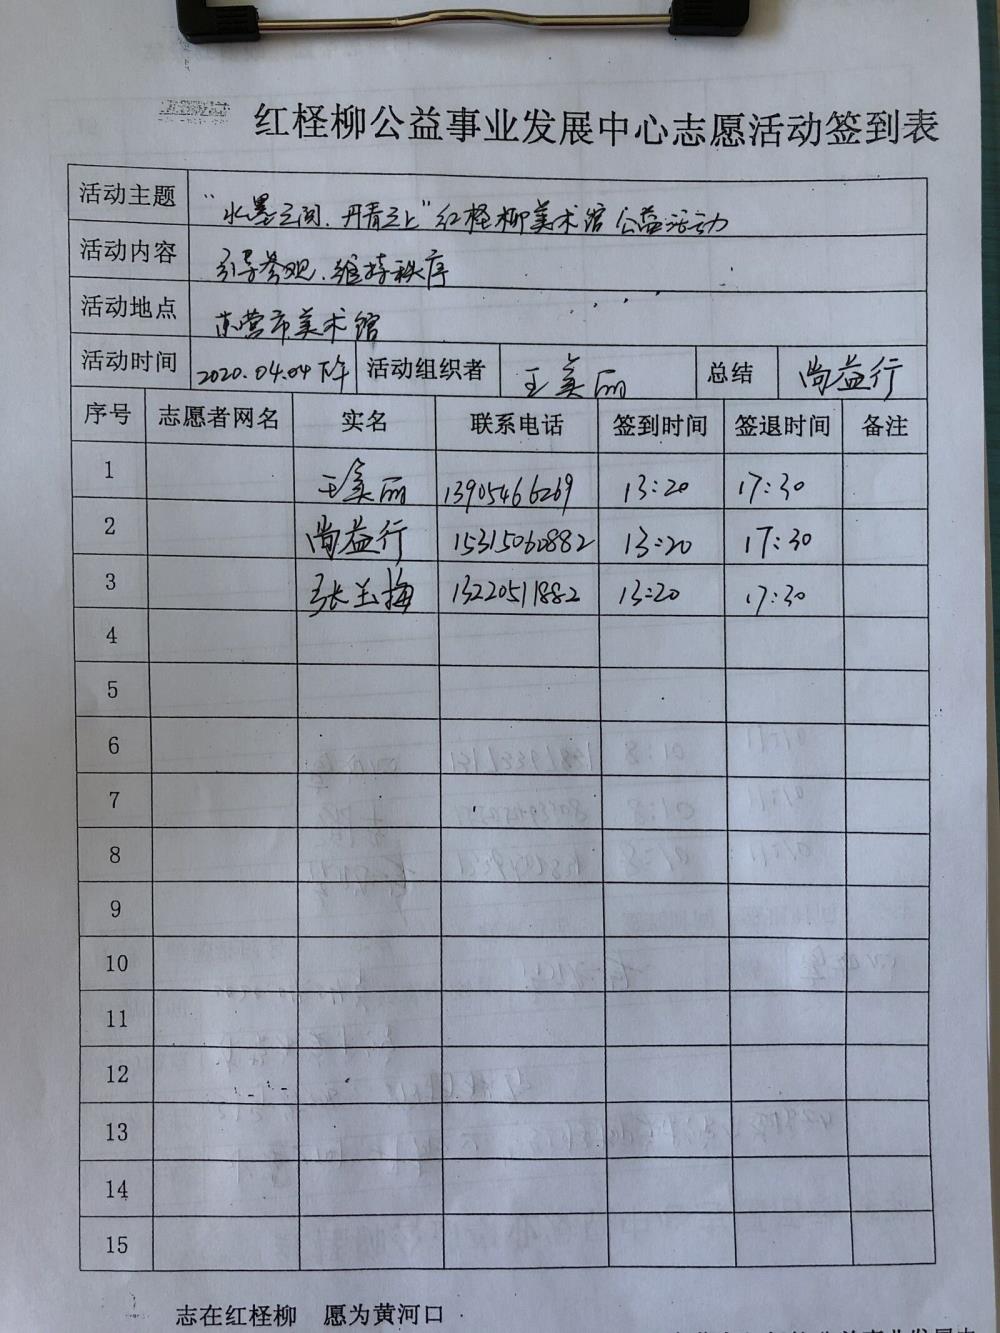 红柽柳公益事业发展中心志愿活动签到表
活动主题 “水墨之间、丹青之上”红柽柳美术馆公益活动
活动内容 引导参观、维持秩序
活动地点 东营市美术馆
活动时间 2020.04.04下午 活动组织者 王美丽 总结 尚益行
序号 志愿者网名 实名 联系电话 签到时间 签退时间 备注
1 王美丽 13905466269 13:20 17:30
2 尚益行 15315060882 13:20 17:30
3 张玉梅 13220511882 13:20 17:30
4
5
6
7
8
9
10
11
12
13
14
15
志在红柽柳 愿为黄河口